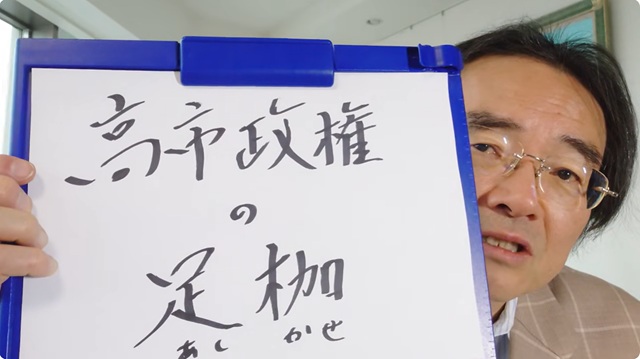 高市政権
の
足枷
あし かせ